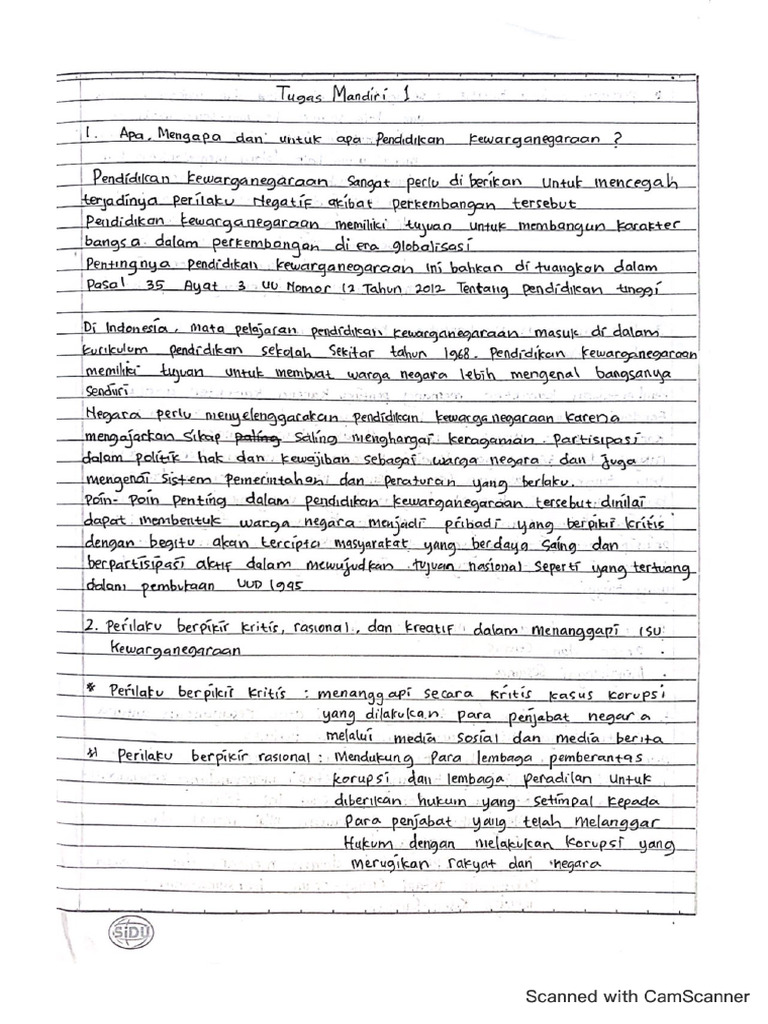 Tugas Mandiri 1
1. Apa, Mengapa dan untuk apa Pendidikan Kewarganegaraan ?
Pendidikan Kewarganegaraan sangat perlu di berikan untuk mencegah
terjadinya perilaku Negatif akibat perkembangan tersebut
Pendidikan kewarganegaraan memiliki tujuan untuk membangun karakter
bangsa dalam perkembangan di era globalisasi
Pentingnya pendidikan kewarganegaraan ini bahkan di tuangkan dalam
Pasal 35 Ayat 3 UU Nomor 12 Tahun 2012 Tentang pendidikan tinggi
Di Indonesia, mata pelajaran pendidikan kewarganegaraan masuk di dalam
kurikulum pendidikan sekolah sekitar tahun 1968. Pendidikan kewarganegaraan
memiliki tujuan untuk membuat warga negara lebih mengenal bangsanya
sendiri
Negara perlu menyelenggarakan pendidikan kewarganegaraan karena
mengajarkan sikap paling saling menghargai keragaman, Partisipasi
dalam politik hak dan kewajiban sebagai warga negara dan juga
mengenai sistem pemerintahan dan peraturan yang berlaku.
Poin-Poin penting dalam pendidikan kewarganegaraan tersebut dinilai
dapat membentuk warga negara menjadi pribadi yang berpikir kritis
dengan begitu akan tercipta masyarakat yang berdaya saing dan
berpartisipasi aktif dalam mewujudkan tujuan nasional seperti yang tertuang
dalam pembukaan UUD 1945
2. Perilaku berpikir kritis, rasional, dan kreatif dalam menanggapi isu
Kewarganegaraan
* Perilaku berpikir kritis : menanggapi secara kritis kasus korupsi
yang dilakukan para penjabat negara
melalui media sosial dan media berita
* Perilaku berpikir rasional : Mendukung Para lembaga pemberantas
korupsi dan lembaga peradilan untuk
diberikan hukum yang setimpal kepada
Para penjabat yang telah melanggar
Hukum dengan melakukan korupsi yang
merugikan rakyat dan negara
SiDU
Scanned with CamScanner